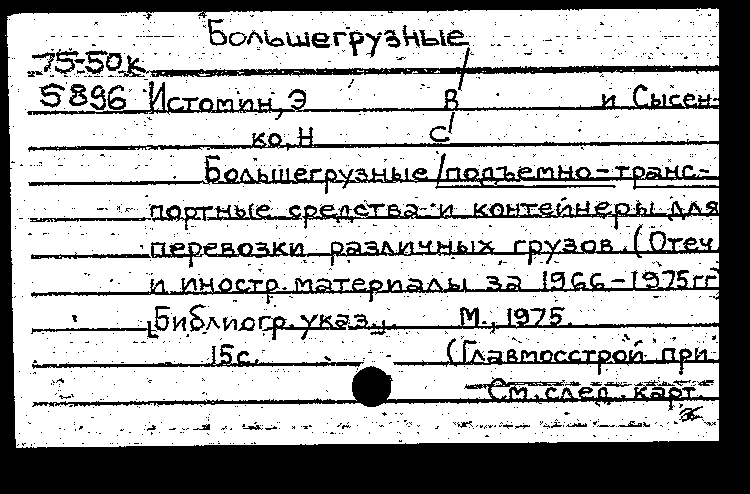 Большегрузные
75-50к
5896 Истомин, Э В и Сысен-
ко, Н С
Большегрузные подъемно-транс-
портные средства и контейнеры для
перевозки различных грузов. (Отеч
и иностр. материалы за 1966-1975гг
[Библиогр. указ.]. М., 1975.
15с. (Главмосстрой при
См. след. карт.